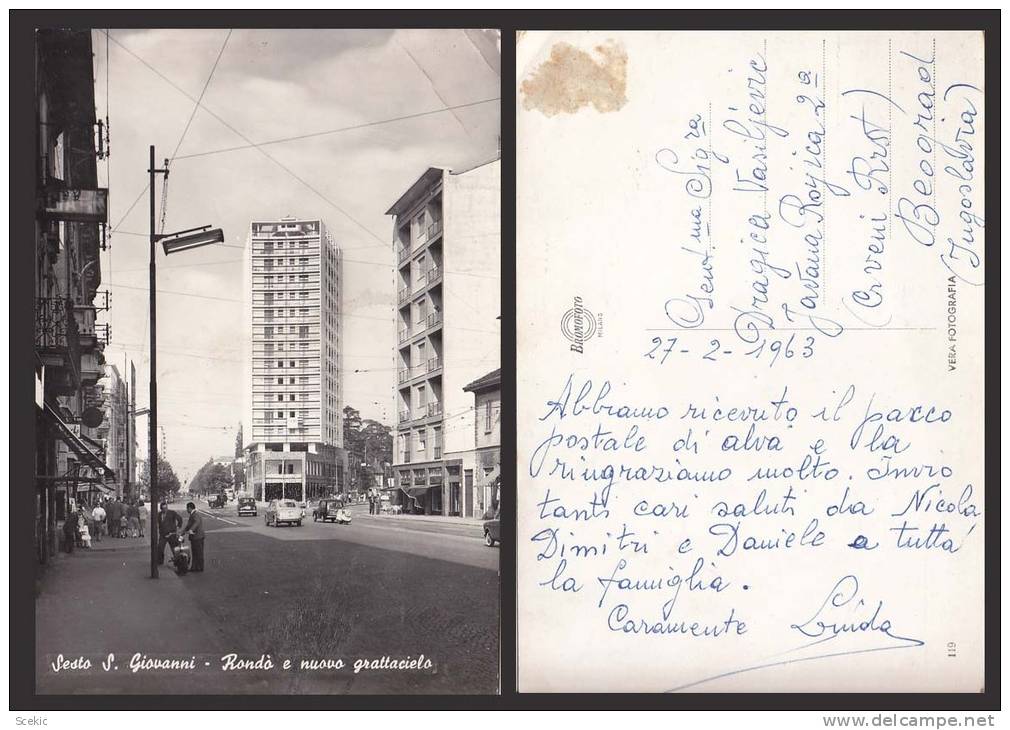 Sesto S. Giovanni - Rondò e nuovo grattacielo
Gent.ma Sig.ra
Dragica Vasiljevic
Jovana Rajica 2a
(Crveni Krst)
Beograd
(Jugoslavia)
BROMOFOTO
MILANO
VERA FOTOGRAFIA
27-2-1963
Abbiamo ricevuto il pacco
postale di alva e la
ringraziamo molto. Invio
tanti cari saluti da Nicola
Dimitri e Daniele a tutta
la famiglia.
Caramente
119
Scekic
www.delcampe.net